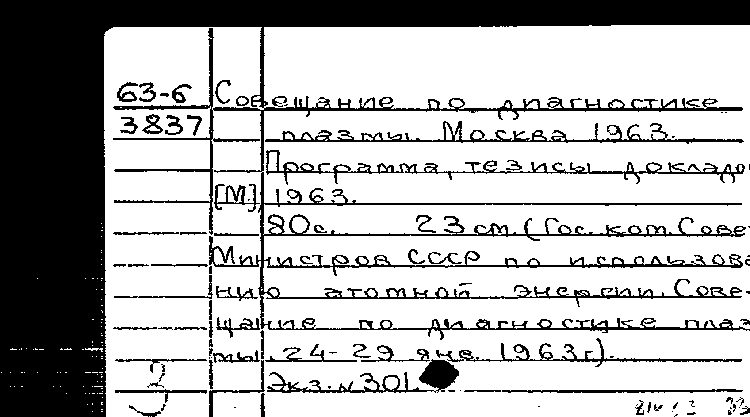 63-6 Совещание по диагностике
3837 плазмы. Москва 1963.
Программа, тезисы докладо
[М.], 1963.
80с. 23 см. (Гос. ком. Сове-
Министров СССР по использова-
нию атомной энергии. Сове-
щание по диагностике плаз-
мы. 24-29 янв. 1963г).
3 Экз. №301.